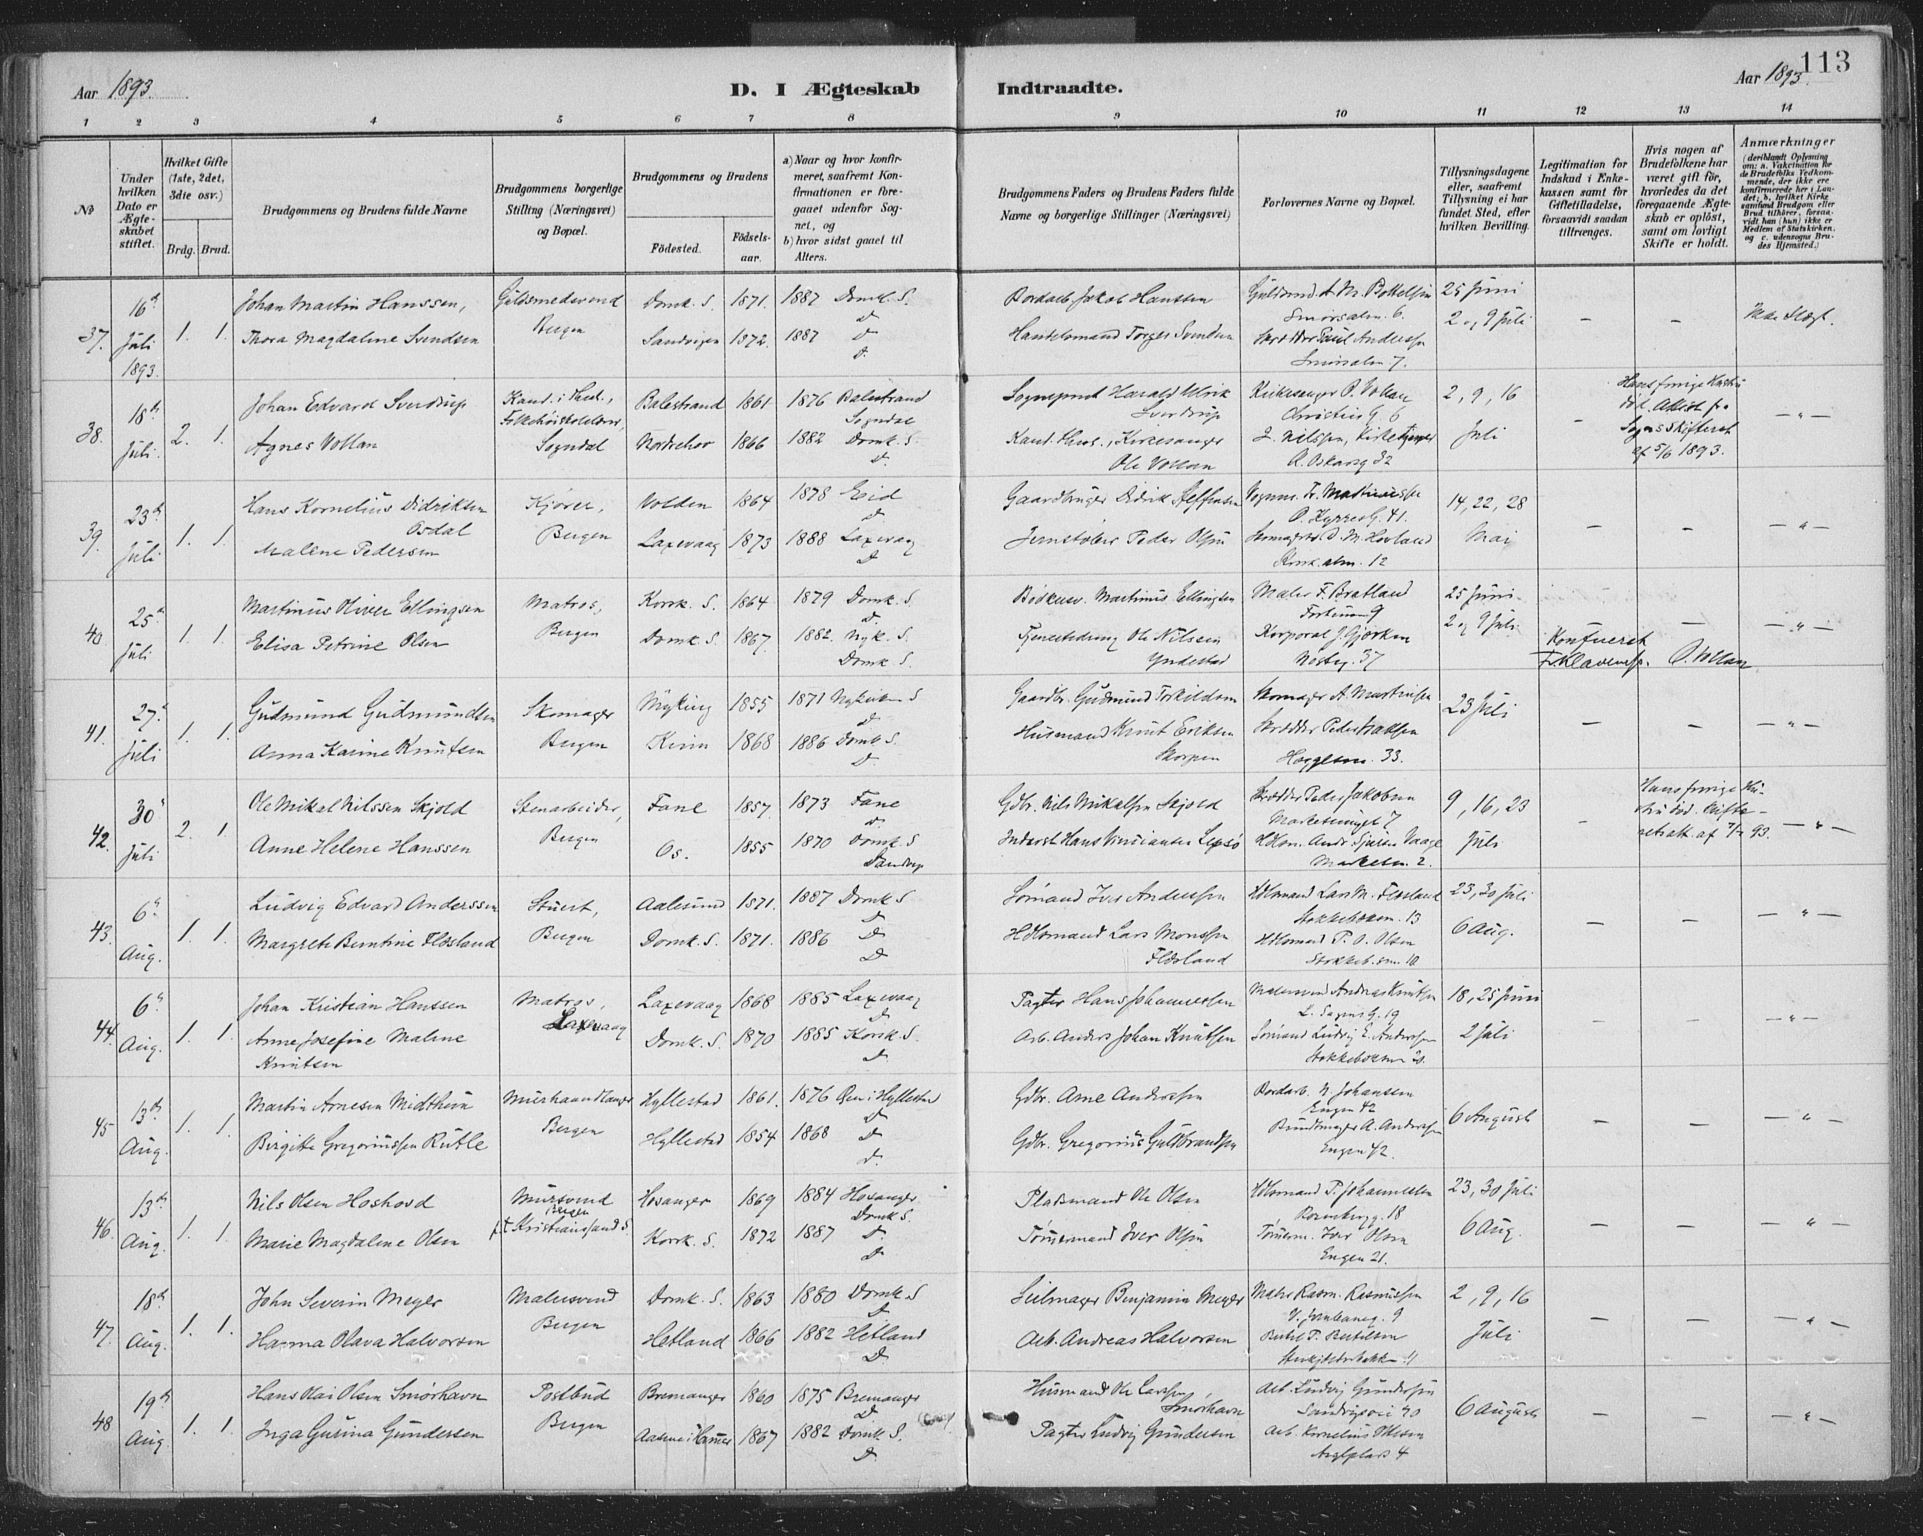 Aar 1893.
D. I Ægteskab Indtraadte.
Aar 1893.
113
1 2 3 4 5 6 7 8 9 10 11 12 13 14
No
Under hvilken Dato er Ægteskabet stiftet.
Hvilket Gifte (1ste, 2det, 3die osv.)
Brdg. Brud.
Brudgommens og Brudens fulde Navne
Brudgommens borgerlige Stilling (Næringsvei) og Bopæl.
Brudgommens og Brudens
Fødested.
Fødselsaar.
a) Naar og hvor konfirmeret, saafremt Konfirmationen er foregaaet udenfor Sognet, og
b) hvor sidst gaaet til Alters.
Brudgommens Faders og Brudens Faders fulde Navne og borgerlige Stillinger (Næringsvei)
Forlovernes Navne og Bopæl.
Tillysningsdagene eller, saafremt Tillysning ei har fundet Sted, efter hvilken Bevilling.
Legitimation for Indskud i Enkekassen samt for Giftetilladelse, forsaavidt saadan tiltrænges.
Hvis nogen af Brudefolkene har været gift før, hvorledes da det foregaaende Ægteskab er opløst, samt om lovligt Skifte er holdt.
Anmærkninger (deriblandt Oplysning om: a. Vakcination for de Brudefolks Vedkommende, der ikke ere konfirmerede her i Landet; b. hvilket Kirkesamfund Brudgom eller Brud tilhører, forsaavidt han (hun) ikke er Medlem af Statskirken, og c. udensogns Brudes Hjemsted.)
37. 16de Juli 1893. 1. 1.
Johan Martin Hanssen, Guldsmedsvend Bergen Domk. S. 1871. 1887 Domk. S. d
Thora Magdalene Svendsen Sandvigen 1872. 1887 d d.
Bordarb. Jakob Hanssen
Smørsalm. 6.
25 Juni
Torger Svendsen
Paul Anderssen
Smørsalm 7.
2 og 9 Juli
— —
38. 18de Juli. 2. 1.
Johan Edvard Sverdrup Kand. i Theol., Sogndal Balestrand 1861 1876 Balestrand Sogndal
Agnes Vollan Norderhov 1866 1882 Domk. S. d.
Sogneprest Harald Ulrik Sverdrup
Kirkesanger O. Vollan
Christies G. 6
2, 9, 16 Juli
Kand. theol., Kirkesanger Ole Vollan
Nilssen, Kirketjener
—
af 5/6 1893.
— " —
39. 23de Juli 1. 1.
Hans Kornelius Didriksen Osdal Kjører, Bergen Volden 1864 1878 Eid d
Malene Pedersen Laxevaag 1873 1888 Laxevaag d
Gaardbruger Didrik Steffensen
O. Kyrres G. 41.
14, 22, 28 Mai
Jernstøber Peder Olsen
Skomager D. M. Hovland
Korsk. alm. 12
— — — " —
40 25de Juli 1. 1.
Martinus Oliver Ellingsen Matros, Bergen Korsk. S. 1864 1879 Domk. S. d.
Elisa Petrine Olsen Domk. S. 1867. 1882. Nyk. S. Domk. S.
Bødkersv. Martinus Ellingsen
Maler F. Bratland
25 Juni
2 og 9 Juli
Ole Nilssen Yndestad
Korporal J. Gjørken
Nosteg. 37
Konfereret
O. Vollan
— — " —
41. 27de Juli 1. 1.
Gudmund Gudmundsen Skomager Bergen Myking 1855 1871 Nykirken S d
Anna Karine Knutsen Kinn 1868 1886 Domk. S. d.
Gaardbr. Gudmund Torkildsen
Skomager A. Martinsen
23 Juli
Husmand Knut Eriksen Skorpen
Skrædder
33.
— — — " —
42. 30de Juli 2. 1
Ole Mikal Nilssen Skjold Stenarbeider, Bergen Fane 1857. 1873 Fane d.
Anne Helene Hanssen Os. 1855 1870 Domk. S
Gdbr. Nils Mikalsen Skjold
Skrædder Peder Jakobsen
9, 16, 23 Juli
Inderst Hans Lepsø
Markesm. 2.
—
— " —
43. 6te Aug. 1. 1.
Ludvig Edvard Anderssen Stuert, Bergen Aalesund 1871. 1887 Domk. S d
Margrete Berntine Flosland Domk. S. 1871. 1886 d d
Sømand Iver Anderssen
Hdlsmand Lars M. Flosland
Stokkeboksm. 13
23, 30 Juli
6 Aug.
Hdlsmand Lars Monssen Flosland
Hdlsmand P. O. Olsen
Stokkeb. sm. 10
— — — " —
44. 6te Aug. 1. 1.
Johan Kristian Hanssen Matros, Laxevaag Laxevaag 1868 1885 Laxevaag d
Anne Josefine Malene Knutsen Domk. S. 1870 1885 Korsk. S. d
Pagter Hans Johannessen
Malersvend Andreas Knutsen
L. Sagens G. 19
18, 25 Juni
2 Juli
Arb. Anders Johan Knutsen
Sømand Ludvig E. Anderssen
— — — " —
45 13de Aug. 1. 1.
Martin Arnesen Midthun Murhaandlanger Bergen Hyllestad 1861. 1876 Øen i Hyllestad d
Birgitte Gregoriussen Rutle Hyllestad 1854 1868 d d.
Gdbr. Arne Anderssen
Bordarb. N. Johansen
Engen 42
6 August
Gdbr. Gregorius Guldbrandsen
Buntmager A. Anderssen
Engen 42.
— — — " —
46. 13de Aug. 1. 1.
Nils Olsen Hoshovd Mursvend Bergen p.t. Kristianssand S. Hosanger 1869 1884 Hosanger Domk S.
Marie Magdalene Olsen Korsk. S. 1872 1887 d d
Pladsmand Ole Olsen
Hdlsmand T. Johannessen
Rosenbergg. 18
23, 30 Juli
6 Aug.
Tømermand Iver Olsen
Tømerm. Iver Olsen
Engen 21.
— — — " —
47. 18de Aug. 1. 1.
John Severin Meyer Malersvend Bergen Domk. S. 1863 1880 Domk. S d
Hanna Olava Halvorsen Hetland 1866 1882 Hetland d
Seilmager Benjamin Meyer
Maler Rasm. Rasmussen
2, 9, 16 Juli
Arb. Andreas Halvorsen
— — — " —
48 19de Aug 1. 1.
Hans Olai Olsen Smørhavn Postbud Bergen Bremanger 1860 1875 Bremanger d
Inga Gurina Gundersen 1867 1882 Domk S. d
Husmand Ole Larssen, Smørhavn
Arb. Ludvig Gundersen
Sandvigsvei 40
6 August
Pagter Ludvig Gundersen
Arb. Kornelius Olsen
— — — " —